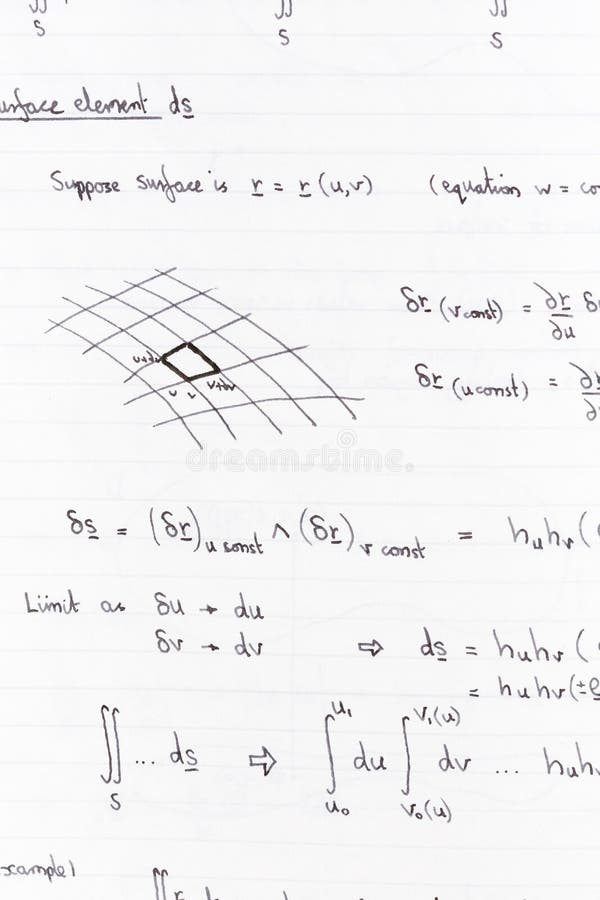 ∬ ∬ ∬
S S S
urface element ds
Suppose surface is r = r(u,v) (equation w = co
δr (v const) = ∂r/∂u δ
u+du v+dv
u v
δr (u const) = ∂r/∂
dreamstime
δs = (δr)u sonst ∧ (δr)v const = huhv(
Limit as δu → du
δv → dv ⇒ ds = huhv(
= huhv(±e
∬S ... ds ⇒ ∫u₀^u₁ du ∫v₀(u)^v₁(u) dv ... huh
xample)
∬